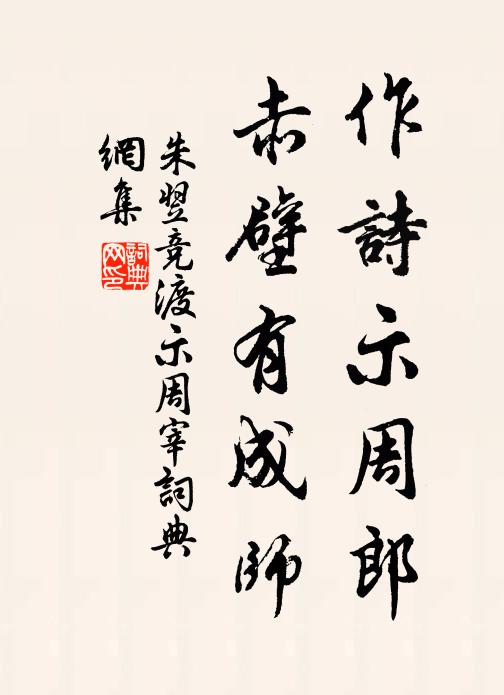 作詩示周郎
赤壁有成師
朱翌竞渡示周宰詞典
網集
詞典
网印